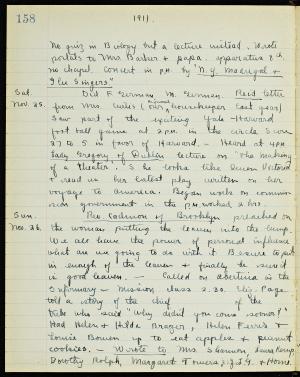 158
1911.
no quiz in Biology but a lecture instead. Wrote
postals to Mrs Barber & papa.
no chapel. Concert in p.m. by "N.Y. Madrigal &
Glee Singers"
Sat. Did F German M. German. Rec'd letter
Nov. 25. from Mrs. housekeeper last year)
Saw part of the exciting Yale-Harvard
foot ball game at 2 p.m. in the circle. Score
27 to 5 in favor of Harvard. - Heard at 4 p.m.
Lady Gregory of Dublin lecture on "The making
of a theater." She looks like Queen Victoria
& read us her latest play written on her
voyage to America. Began work on commis-
sion government in the p.m. worked 2 hrs.
Sun. Rev Cadman of Brooklyn preached on
Nov. 26. the woman putting the leaven into the lump.
We all have the power of personal influence
what are we going to do with it Be sure to put
in enough of the leaven & finally be sure it
is good leaven. - Called on in the
Infirmary - Mission class 2.30. Page
told a story of the chief of the
tribe who said "Why didn't you come sooner?"
Had Helen & Hilda Brager, Helen Ferris &
Louise Bowen up to eat apples & peanut
cookies. - Wrote to Mrs Shannon,
Dorothy Rolph, Margaret & Home